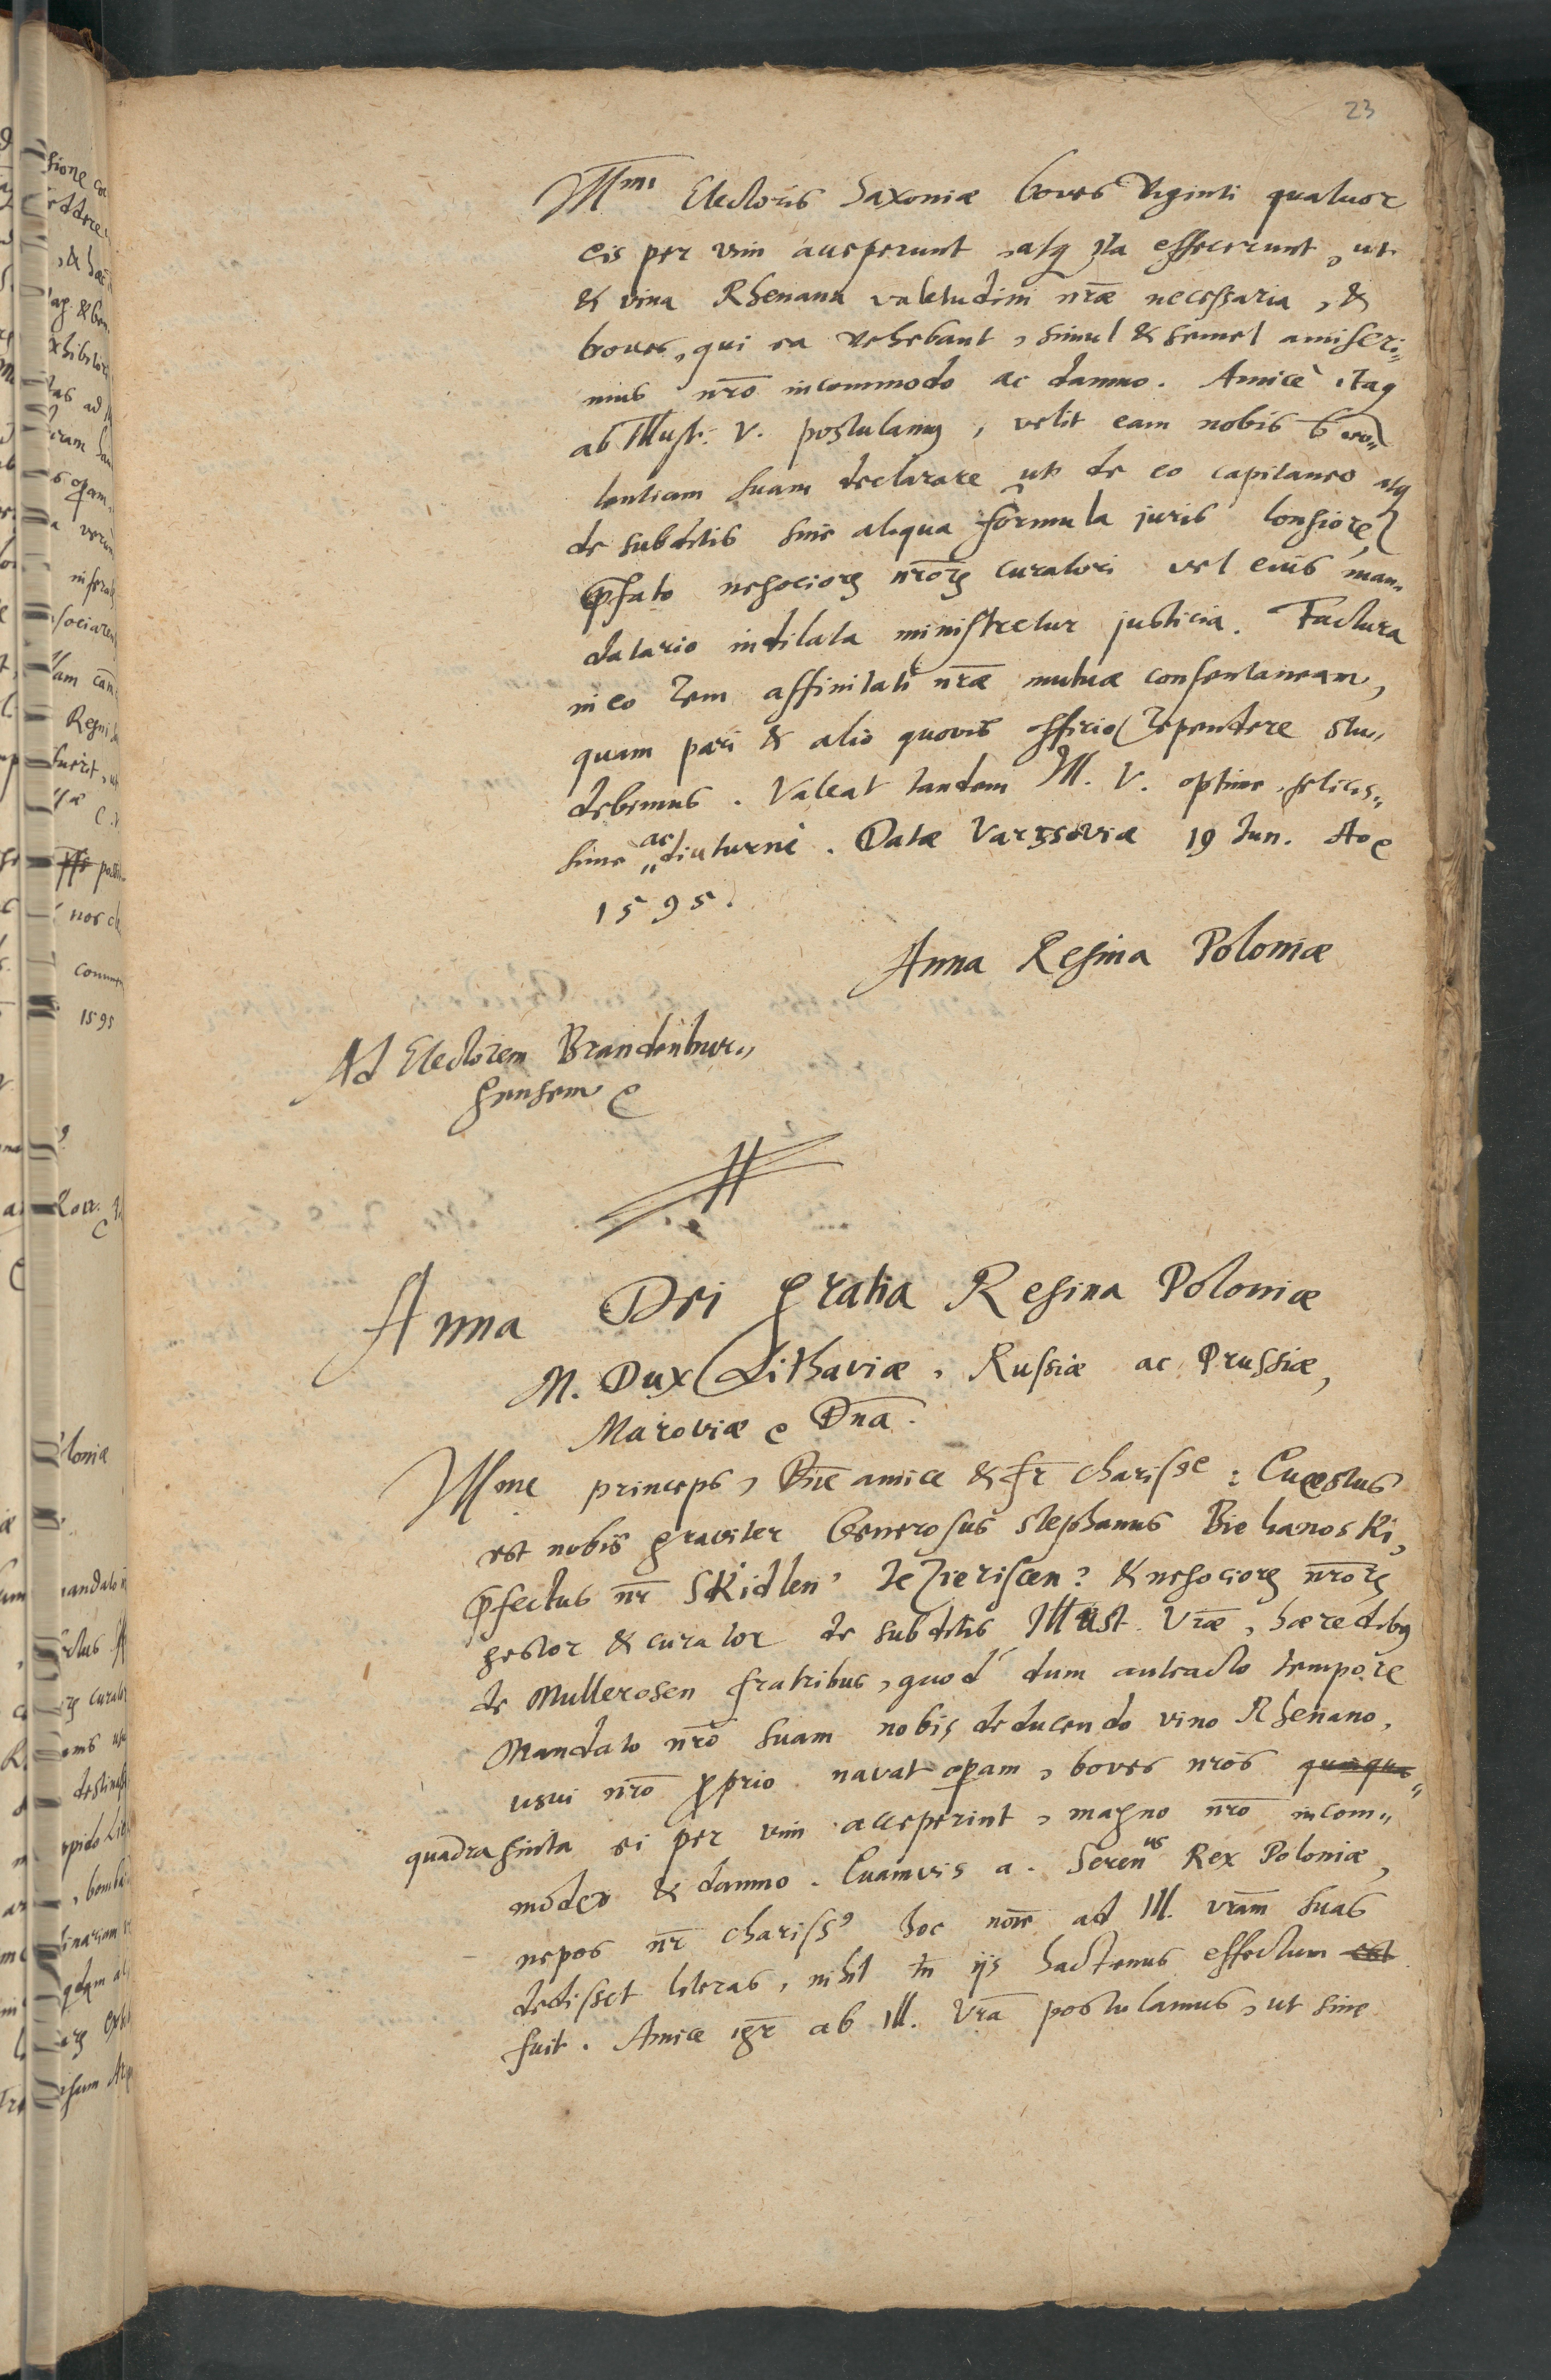 23
Illmi Electoris Saxoniæ boves viginti quatuor
eis per vim acceperunt, atq ita effecerunt, ut
& vina Rhenana valetudini nræ necessaria, &
boves, qui ea vehebant, simul & semel amiseri„
mus nrō incommodo ac damno. Amicè itaq
ab Illust: V. postulamus, velit eam nobis bevo„
lentiam suam declarare ut de eo capitaneo atq
de subditis sine aliqua formula juris longiore,
p̄fato negociorꝝ nrōrꝝ curatori vel eius man„
datario indilata ministretur justicia. Factura
in eo rem affinitati nrāe mutuæ consentaneam,
quam pari & alio quovis officio rependere stu„
debimus. Valeat tandem Ill. V. optime, felicis„
sime ac diuturnè. Datæ Varssoviæ 19 Jun. Ao
1595.
Anna Regina Poloniæ
Ad Electorem Brandenbur„
gensem
Anna Dei gratia Regina Poloniæ
M. Dux Lithaviæ, Russiæ ac Prussiæ,
Mazoviæ Dnā.
Illme princeps, Dne amice & fr̄ charisse: Quæstus
est nobis graviter Generosus Stephanus Bielianoski,
p̄fectus nr̄ Skidlen' & negociorꝝ nrōrꝝ
gestor & curator de subditis Illust. Vrāe, hæredibus
de Mullerosen fratribus, quod dum anteacto tempore
Mandato nrō suam nobis deducendo vino Rhenano,
usui nrō proprio navat opam, boves nrōs quinqua„
quadraginta ei per vim acceperint, magno nrō incom„
modo & damno. Quamvis a. Serenus Rex Poloniæ,
nepos nr̄ chariss' hoc noīe ad Ill. vrām suas
dedisset literas, nihil tn̄ ijs hactenus effectum est
fuit. Amice igr̄ ab Ill. Vrā postulamus, ut sine